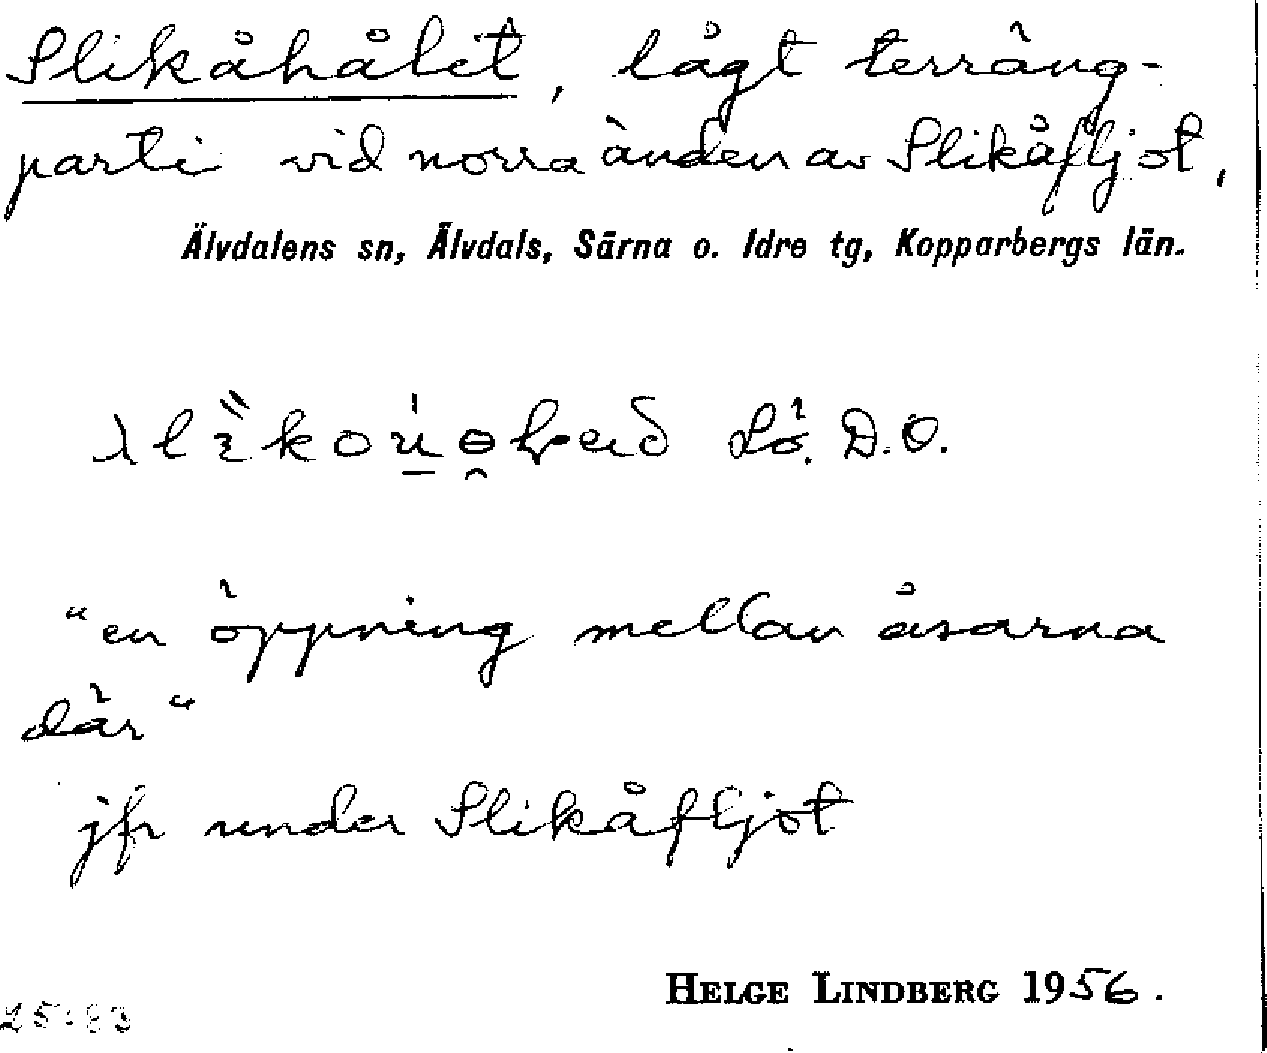 Slikåhålet, lågt terräng-
parti vid norra änden av Slikåfljot,
Älvdalens sn, Älvdals, Särna o. Idre tg, Kopparbergs län.
D.O.
"en öppning mellan åsarna
där"
jfr under Slikåfljot
HELGE LINDBERG 1956.